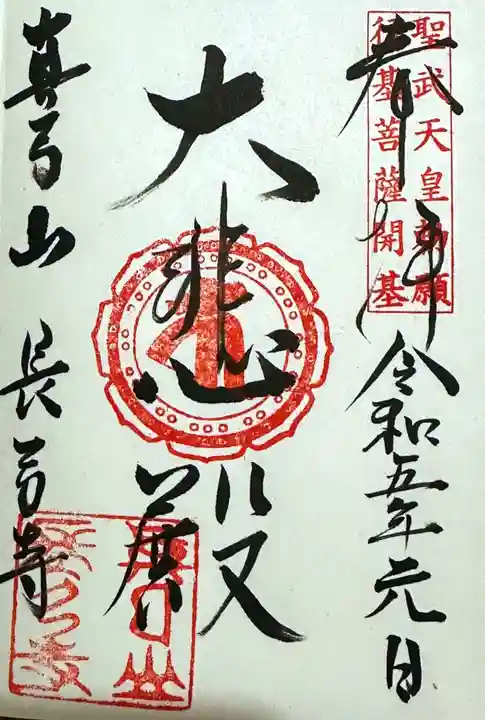 聖武天皇勅願
行基菩薩開基
奉拝
令和五年元日
大悲殿
真弓山 長弓寺